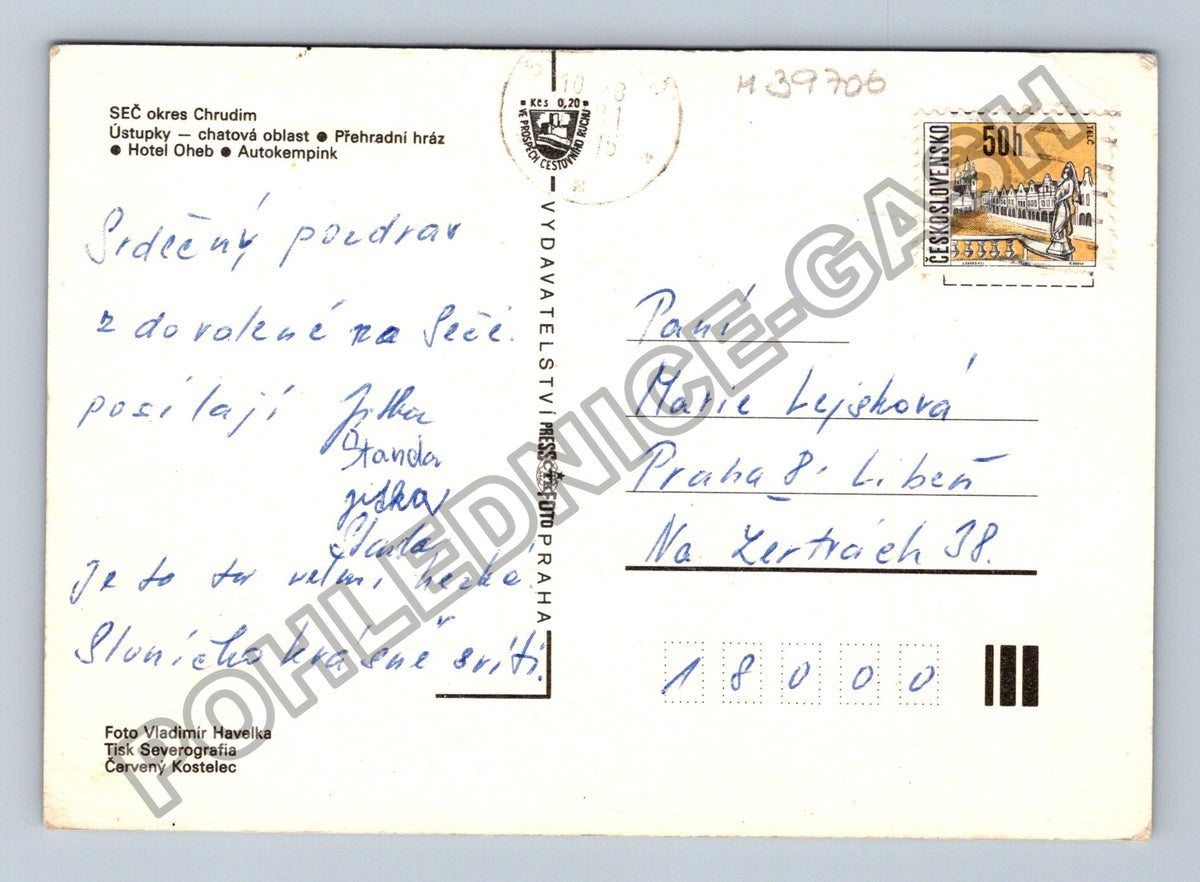 SEČ okres Chrudim
Ústupky — chatová oblast ● Přehradní hráz
● Hotel Oheb ● Autokempink
Srdečný pozdrav
z dovolené na Seči.
posílají Jitka
Standa
jitka
Standa
Je to tu velmi hezké.
Sluníčko krásně svítí.
Foto Vladimír Havelka
Tisk Severografia
Červený Kostelec
Kčs 0,20
VE PROSPĚCH CESTOVNÍHO RUCHU
VYDAVATELSTVÍ PRESSFOTO PRAHA
ČTK
M 39706
ČESKOSLOVENSKO
50h
TELČ
Paní
Marie Lejsková
Praha 8 - Libeň
Na Žertvách 38.
18000
POHLEDNICE-GASH